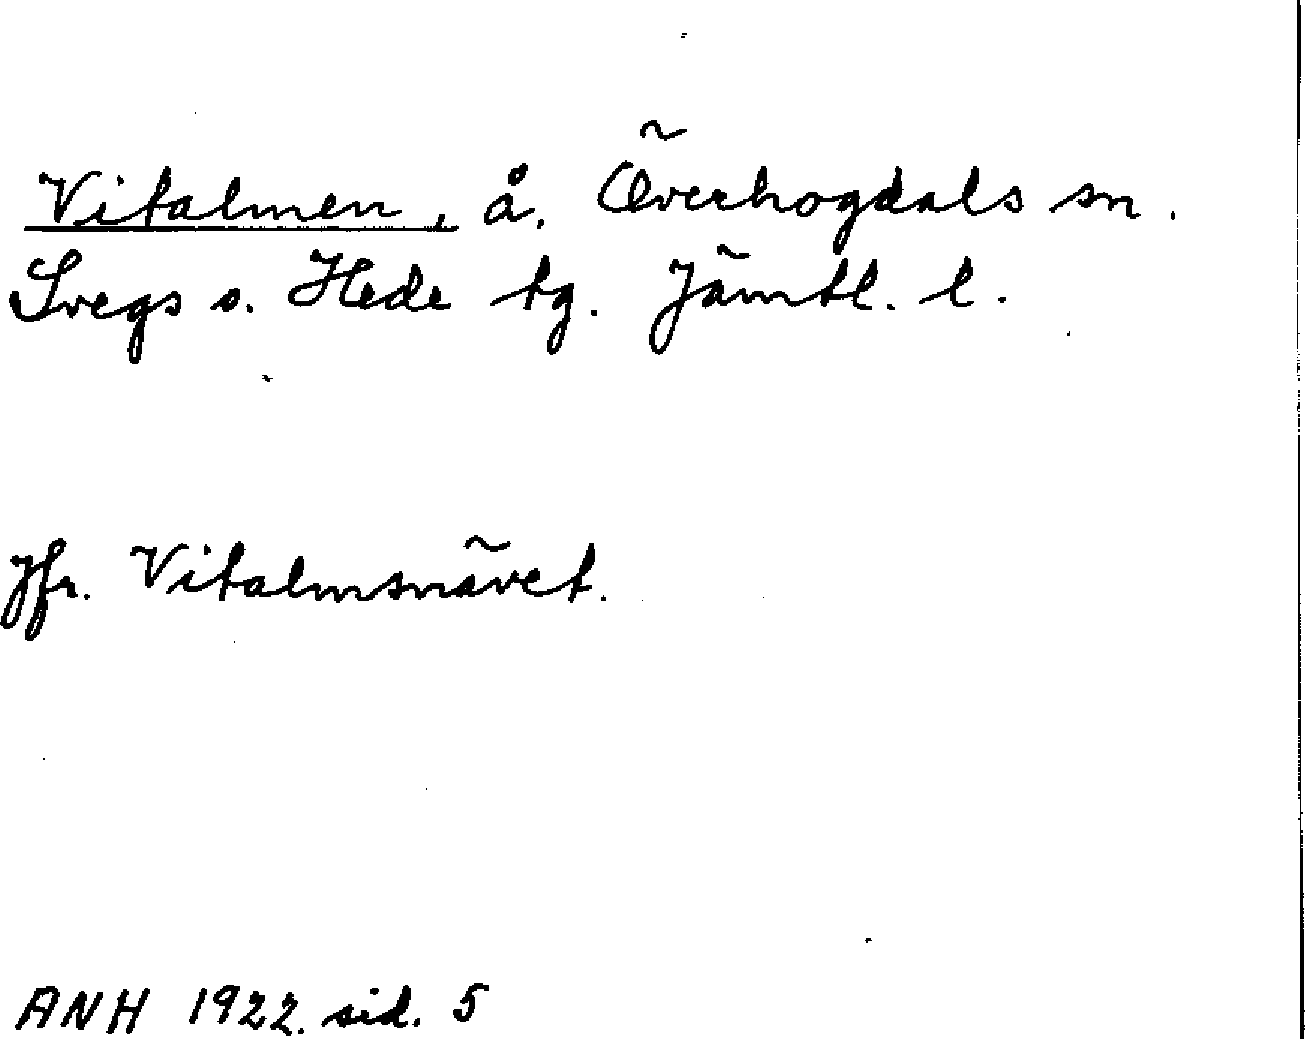 Vitalmen, å. Överhogdals sn.
Svegs o. Hede tg. Jämtl. l.
Jfr. Vitalmsnävet.
ANH 1922. sid. 5